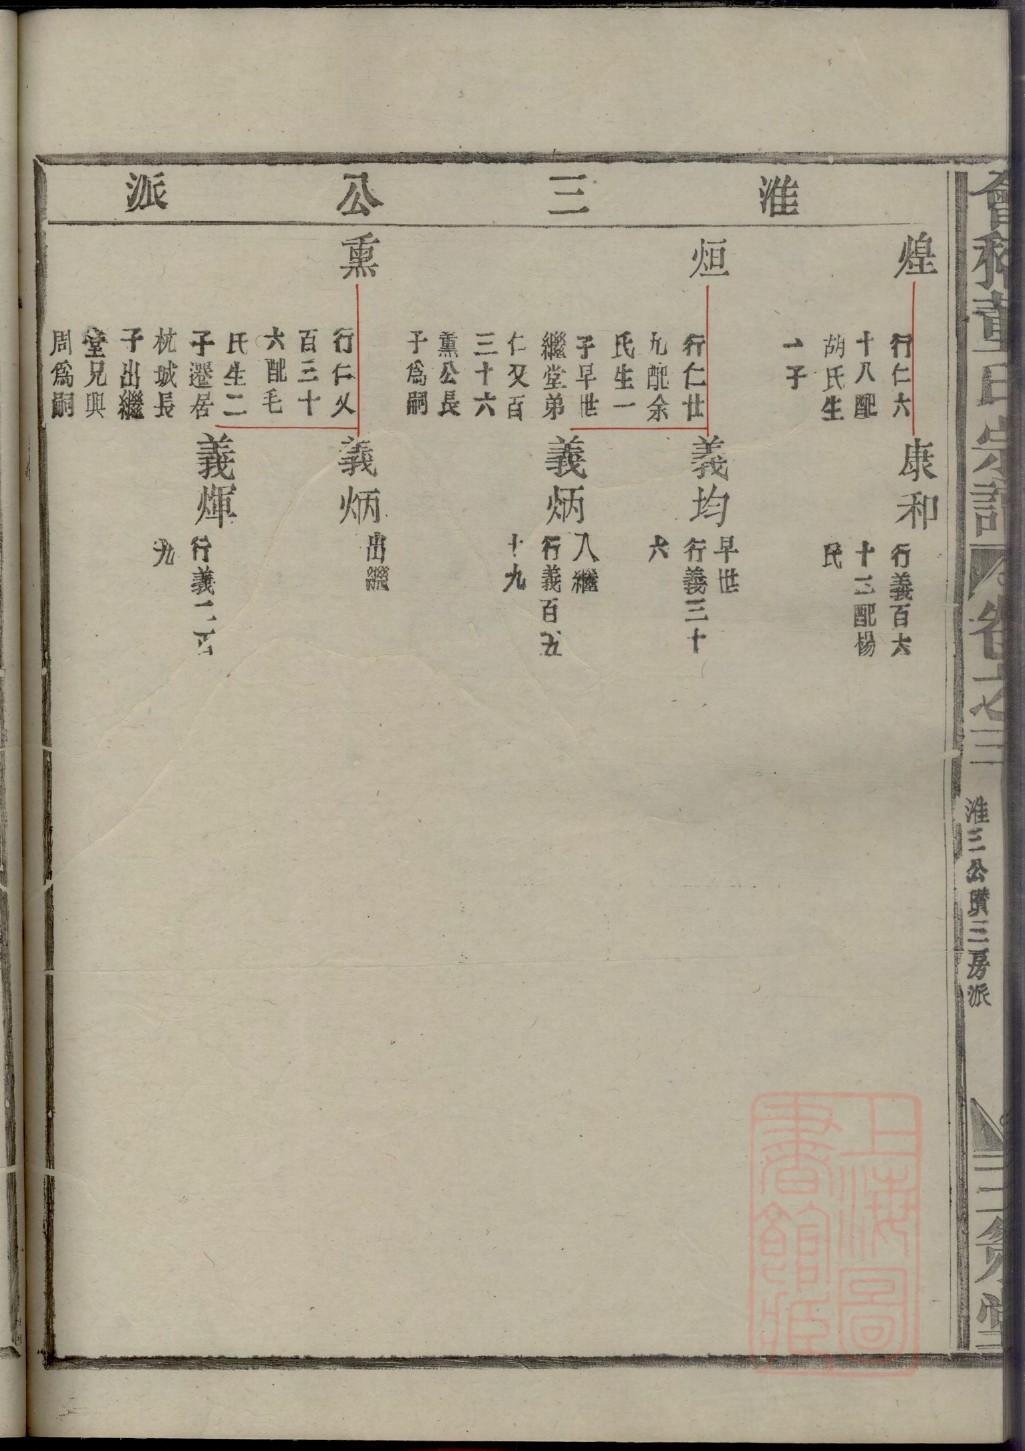 淮三公派
煌
行仁六
十八配
胡氏生
一子
康和
行義百六
十三配楊
氏
烜
行仁廿
九配余
氏生一
子早世
繼堂弟
仁又百
三十六
熏公長
子為嗣
義均
早世
行義三十
六
義炳
入繼
行義百五
十九
熏
行仁又
百三十
六配毛
氏生二
子遷居
杭城長
子出繼
堂兄興
周為嗣
義炳
出繼
義煇
行義二百
九
會稽董氏宗譜
卷之三
淮三公
三房派
三策堂
上海圖
書館藏